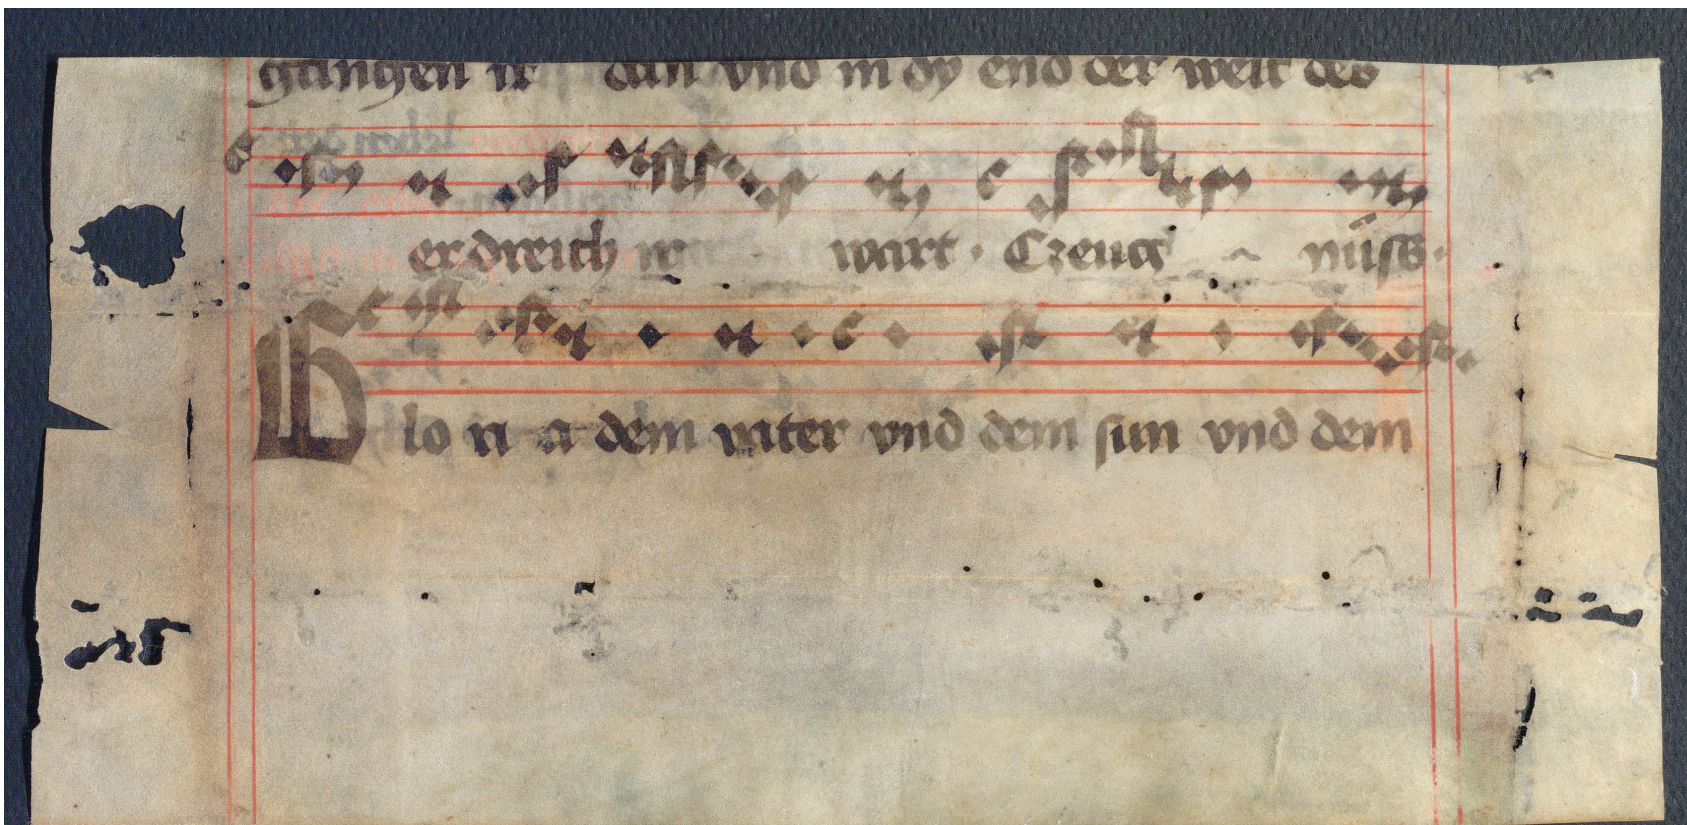 gangen ir dan vnd in dy end der welt des
erdreich ir wart · Czeucg nüss ·
Glo ri a dem vater vnd dem sun vnd dem